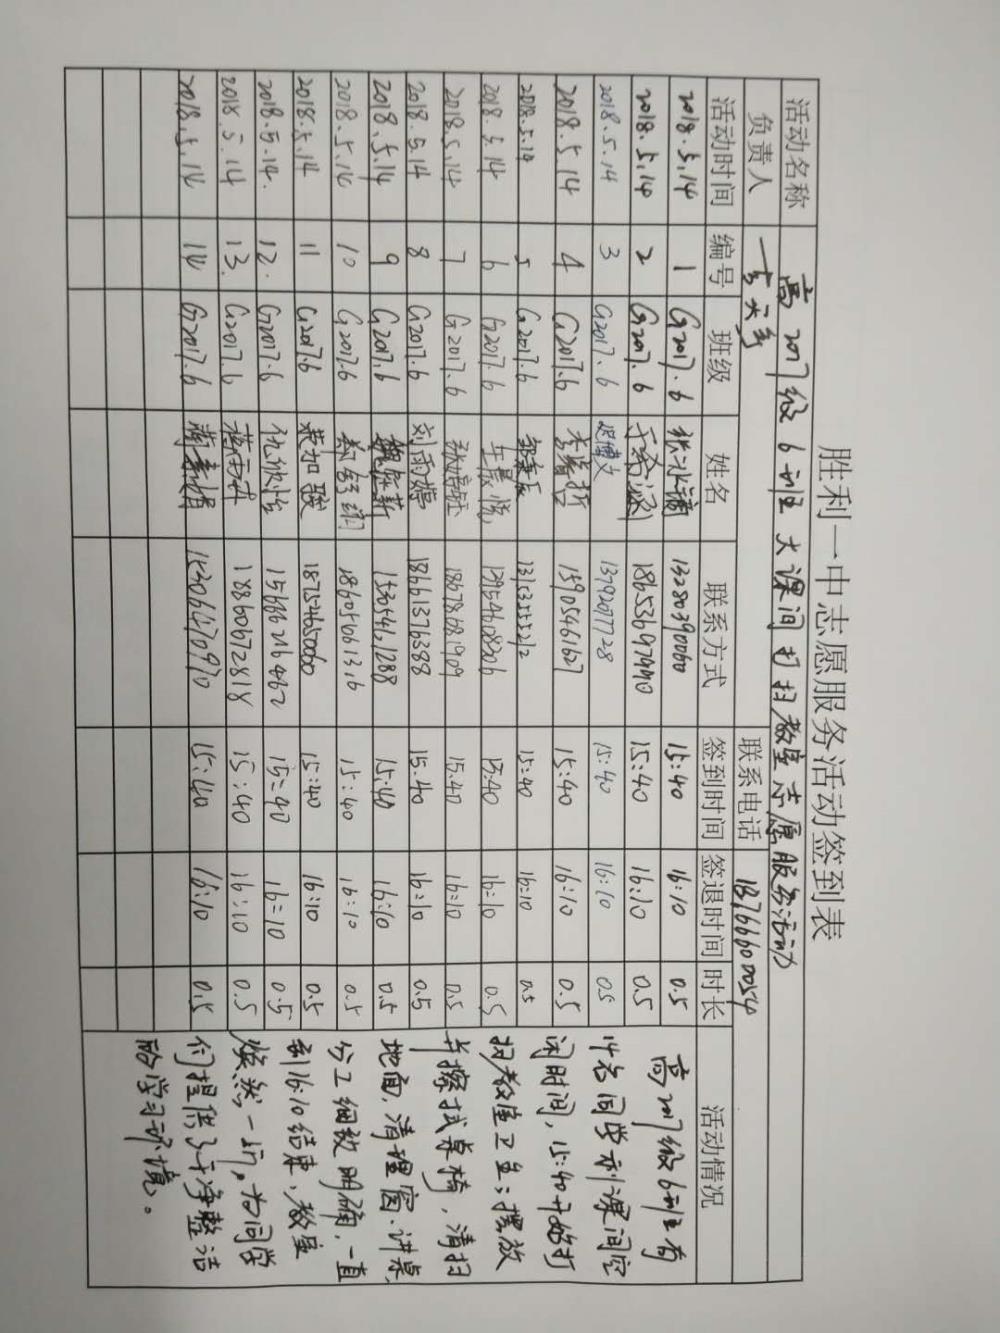 胜利一中志愿服务活动签到表
活动名称 高2017级6班大课间打扫教室志愿服务活动
负责人 联系电话 18766600054
活动时间 编号 班级 姓名 联系方式 签到时间 签退时间 时长 活动情况
2018.5.14 1 G2017.6 13280390060 15:40 16:10 0.5
2018.5.14 2 G2017.6 18653697440 15:40 16:10 0.5
2018.5.14 3 G2017.6 迟博文 13792077728 15:40 16:10 0.5
2018.5.14 4 G2017.6 15905461627 15:40 16:10 0.5
2018.5.14 5 G2017.6 15:40 16:10 0.5
2018.5.14 6 G2017.6 15:40 16:10 0.5
2018.5.14 7 G2017.6 18678681909 15:40 16:10 0.5
2018.5.14 8 G2017.6 刘雨婷 18661376388 15:40 16:10 0.5
2018.5.14 9 G2017.6 15305461288 15:40 16:10 0.5
2018.5.14 10 G2017.6 18605661316 15:40 16:10 0.5
2018.5.14 11 G2017.6 18754650060 15:40 16:10 0.5
2018.5.14. 12. G2017.6 仇欣怡 15666216462 15:40 16:10 0.5
2018.5.14 13. G2017.6 18860672818 15:40 16:10 0.5
2018.5.14 14 G2017.6 15306470970 15:40 16:10 0.5
高2017级6班有
14名同学利课间空
闲时间，15:40开始打
扫教室卫生；摆放
并擦拭桌椅，清扫
地面，清理窗、讲桌，
分工细致明确，一直
到16:10结束，教室
焕然一新，为同学
们提供了干净整洁
的学习环境。